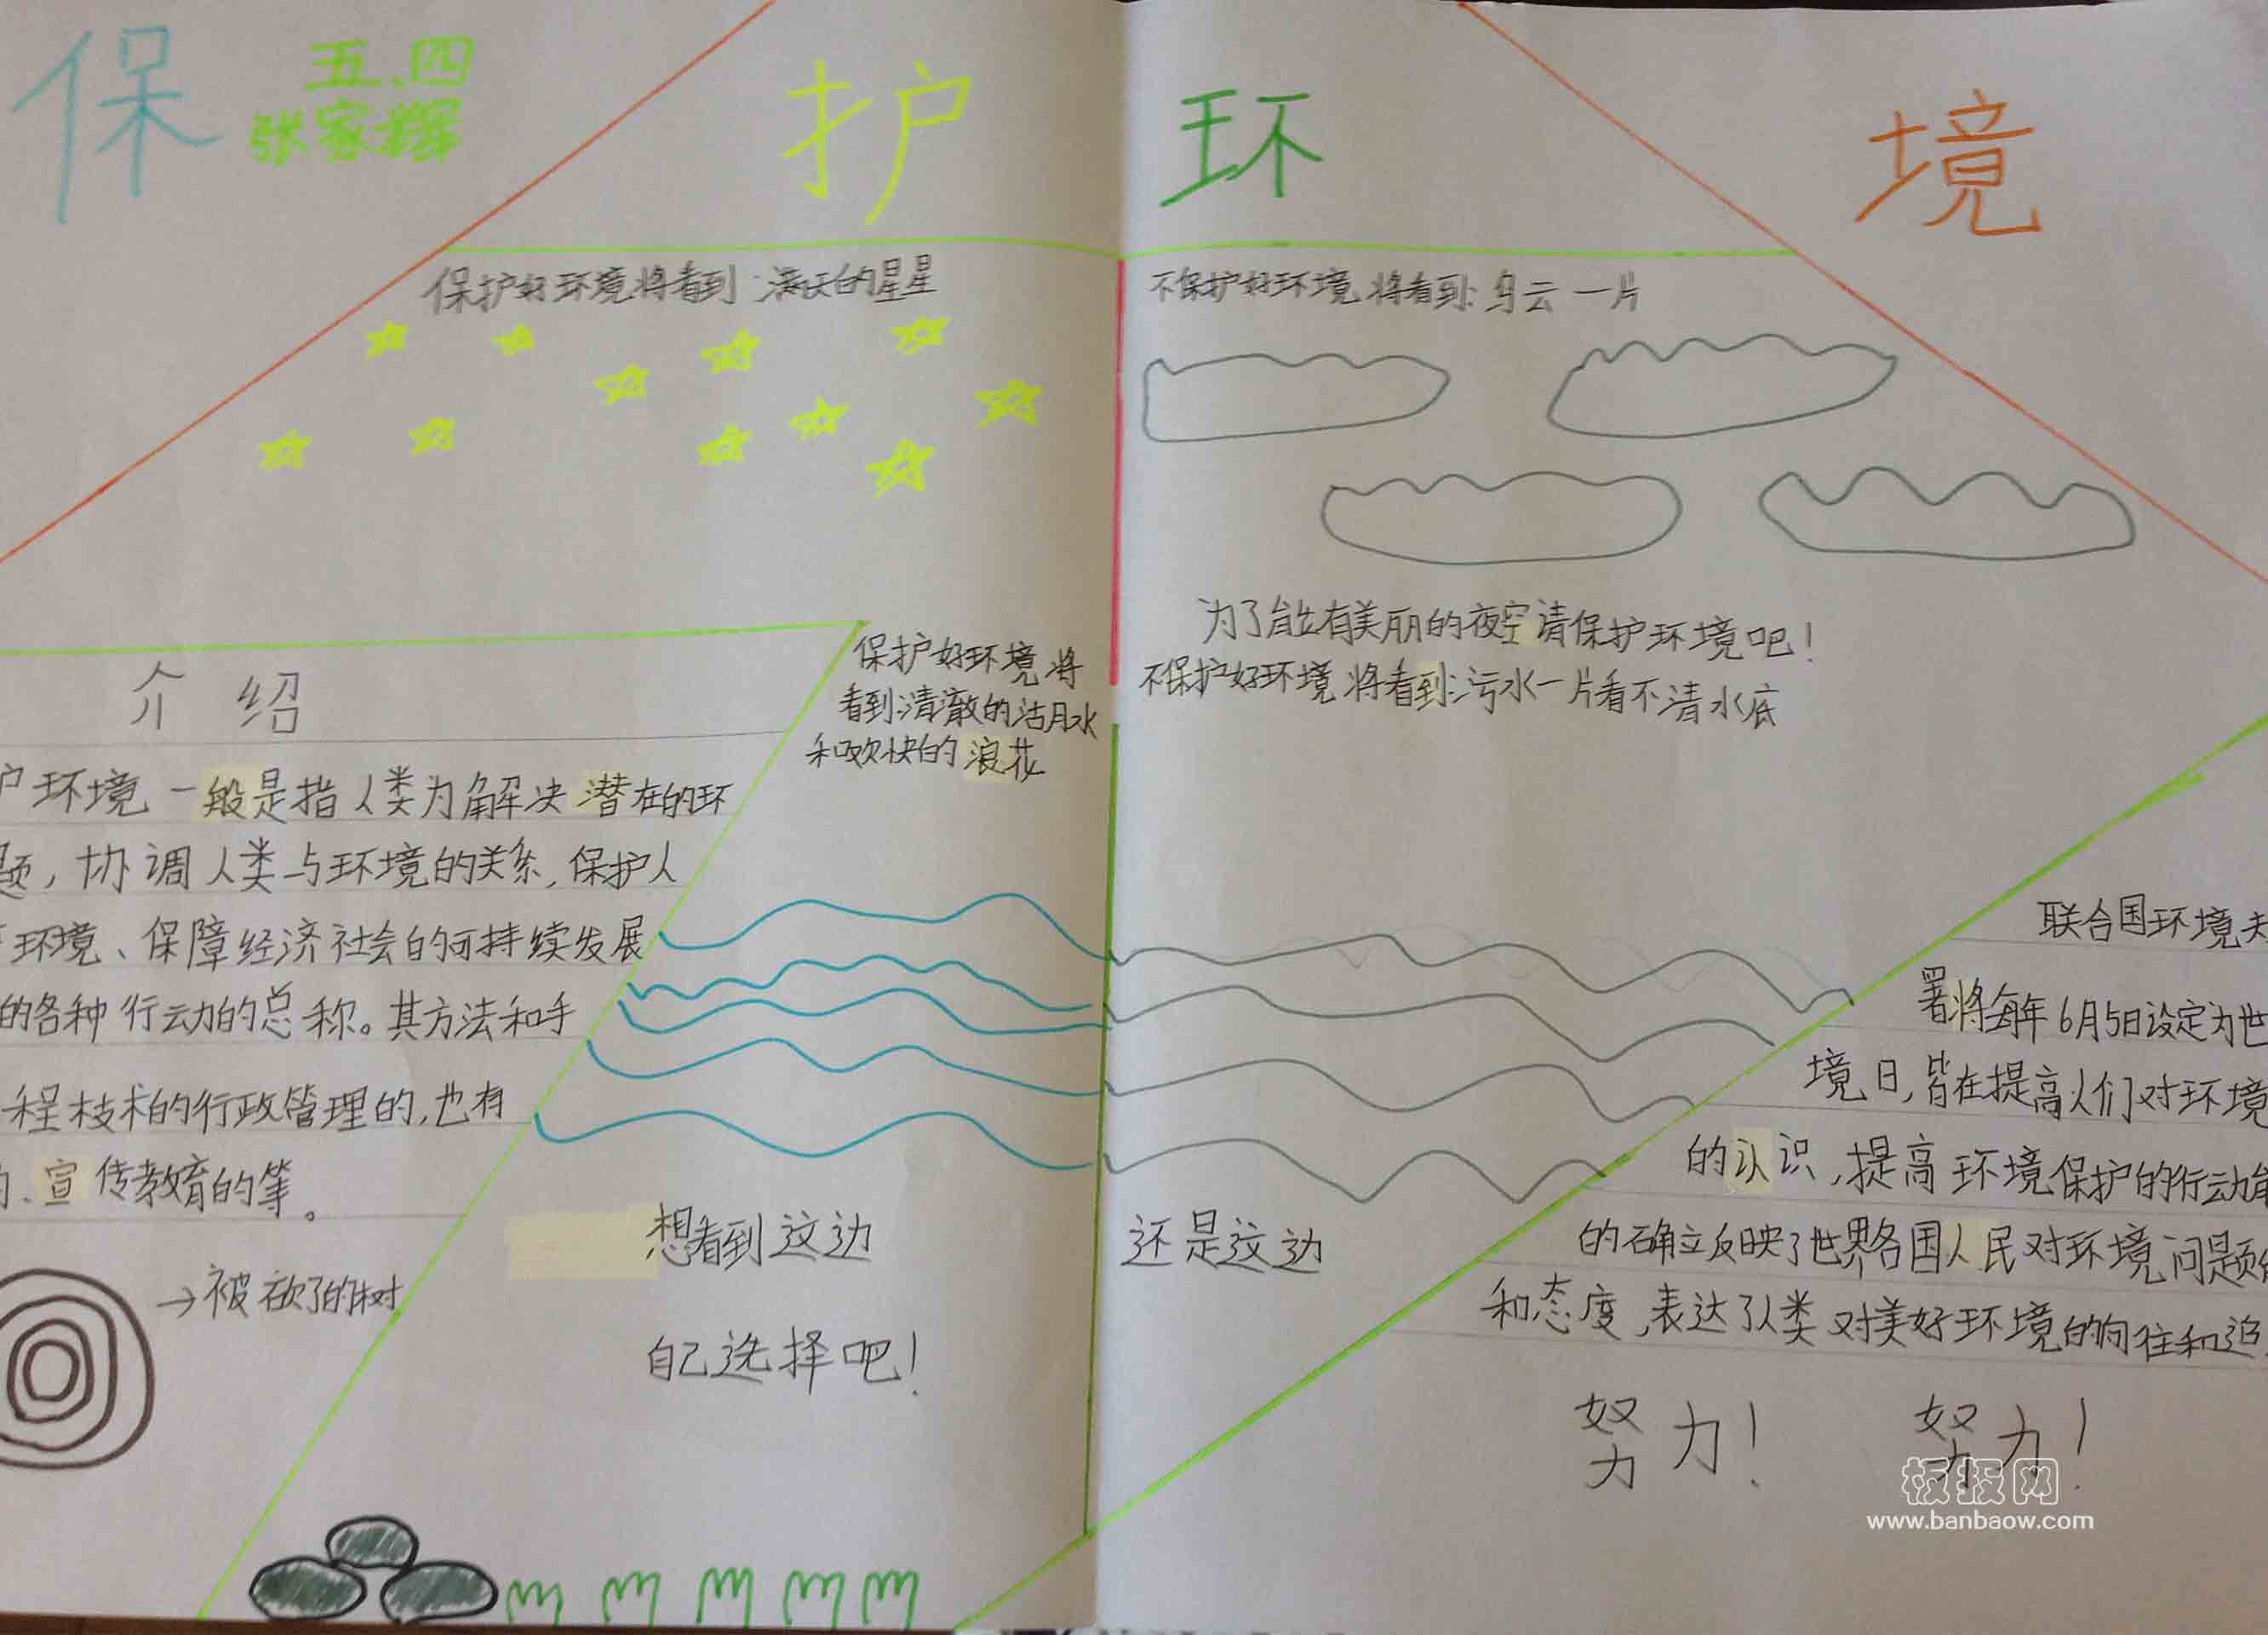 保护环境
五、四
张家辉
保护好环境将看到:满天的星星
不保护好环境,将看到:乌云一片
为了能有美丽的夜空请保护环境吧!
保护好环境,将
看到:清澈的湖水
和欢快的浪花
不保护好环境,将看到:污水一片看不清水底
介绍
护环境一般是指人类为解决潜在的环
题,协调人类与环境的关系,保护人
环境、保障经济社会的可持续发展
的各种行动的总称。其方法和手
程技术的行政管理的,也有
、宣传教育的等。
→被砍了的树
想看到这边
还是这边
自己选择吧!
联合国环境
署将每年6月5日设定为世
境日,皆在提高人们对环境
的认识,提高环境保护的行动
的确立反映了世界各国人民对环境问题
和态度,表达了人类对美好环境的向往和追
努力! 努力!
板报网
www.banbaow.com